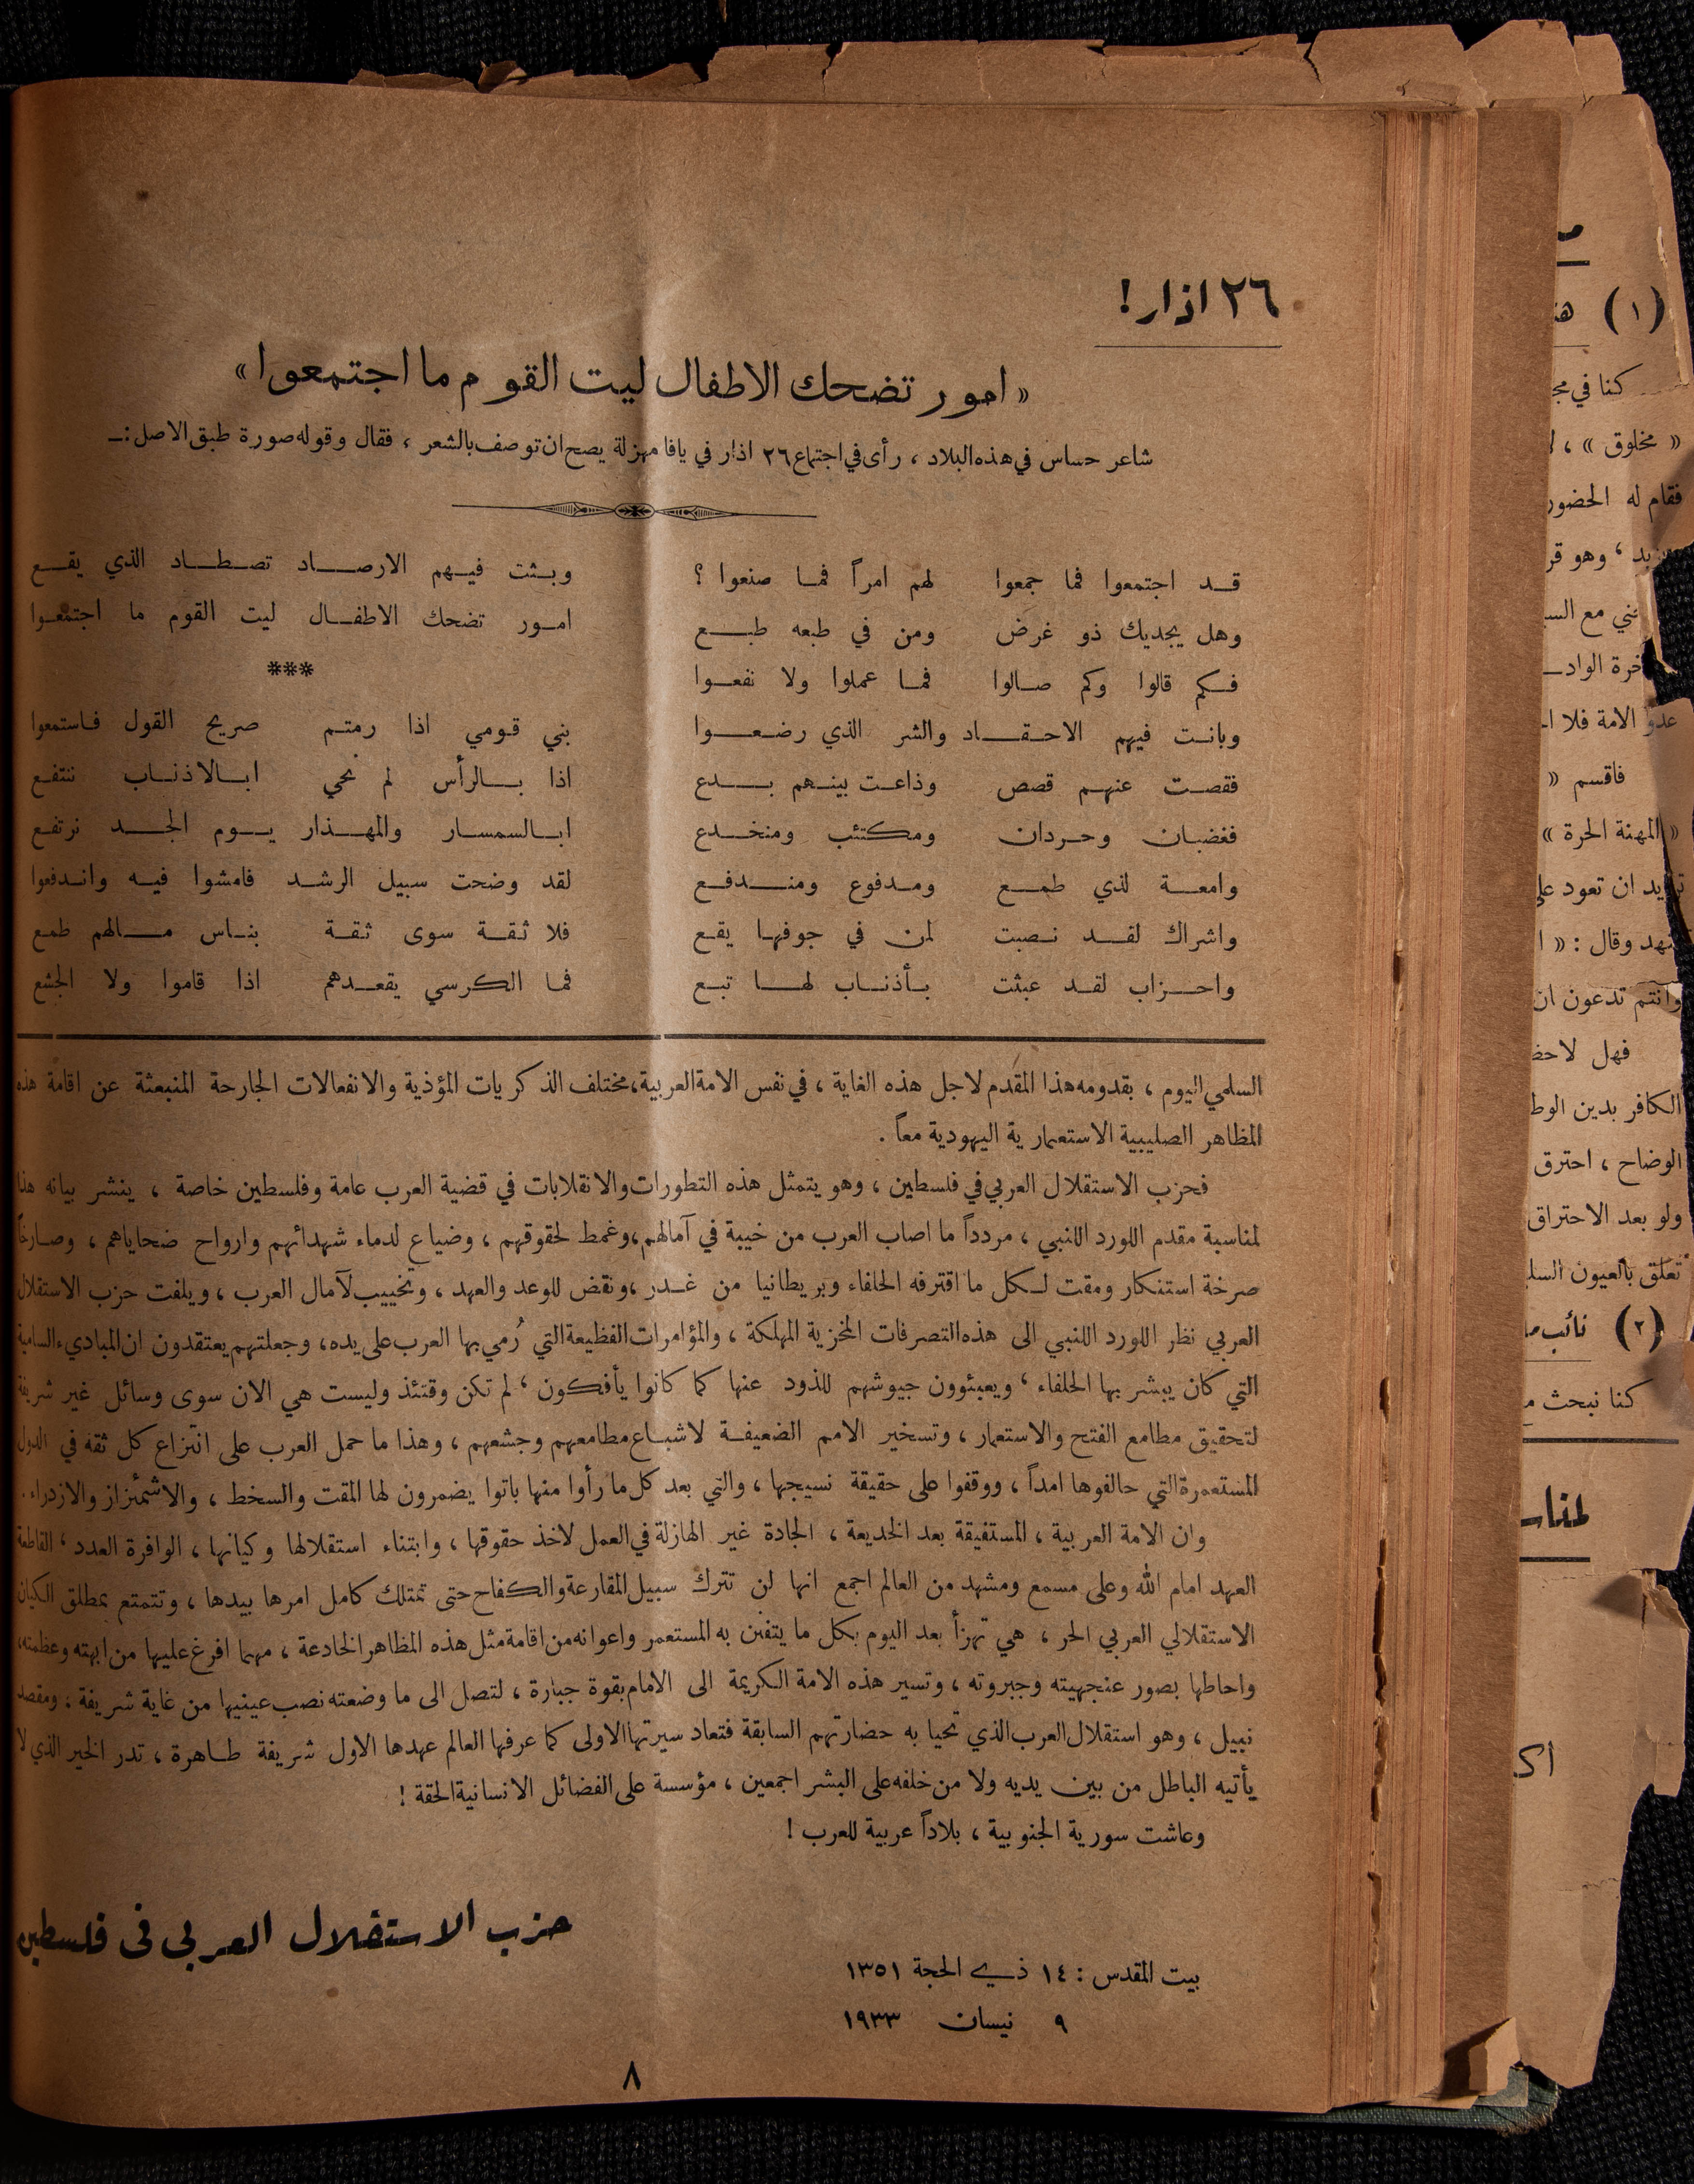 ٢٦ اذار !
« امور تضحك الاطفال ليت القوم ما اجتمعوا »
شاعر حساس في هذه البلاد ، رأى في اجتماع ٢٦ اذار في يافا مهزلة يصح ان توصف بالشعر ، فقال وقوله صورة طبق الاصل : ـ
قد اجتمعوا فما جمعوا لهم امراً فما صنعوا ؟
وهل يجديك ذو غرض ومن في طبعه طبع
فكم قالوا وكم صالوا فما عملوا ولا نفعوا
وبانت فيهم الاحقاد والشر الذي رضعوا
فقصت عنهم قصص وذاعت بينهم بدع
فغضبان وحردان ومكتئب ومنخدع
وامعة لذي طمع ومدفوع ومندفع
واشراك لقد نصبت لمن في جوفها يقع
واحزاب لقد عبثت بأذناب لها تبع
وبثت فيهم الارصاد تصطاد الذي يقع
امور تضحك الاطفال ليت القوم ما اجتمعوا
***
بني قومي اذا رمتم صريح القول فاستمعوا
اذا بالرأس لم نحي ابالاذناب ننتفع
ابالسمسار والمهذار يوم الجد نرتفع
لقد وضحت سبيل الرشد فامشوا فيه واندفعوا
فلا ثقة سوى ثقة بناس مالهم طمع
فما الكرسي يقعدهم اذا قاموا ولا الجشع
السلمي اليوم ، بقدومه هذا المقدم لاجل هذه الغاية ، في نفس الامة العربية ، مختلف الذكريات المؤذية والانفعالات الجارحة المنبعثة عن اقامة هذه
المظاهر الصليبية الاستعمارية اليهودية معاً .
فحزب الاستقلال العربي في فلسطين ، وهو يتمثل هذه التطورات والانقلابات في قضية العرب عامة وفلسطين خاصة ، ينشر بيانه هذا
لمناسبة مقدم اللورد اللنبي ، مردداً ما اصاب العرب من خيبة في آمالهم ، وغمط لحقوقهم ، وضياع لدماء شهدائهم وارواح ضحاياهم ، وصارخاً
صرخة استنكار ومقت لكل ما اقترفه الحلفاء وبريطانيا من غدر ، ونقض للوعد والعهد ، وتخييب لآمال العرب ، ويلفت حزب الاستقلال
العربي نظر اللورد اللنبي الى هذه التصرفات المخزية المهلكة ، والمؤامرات الفظيعة التي رُمي بها العرب على يده ، وجعلتهم يعتقدون ان المباديء السامية
التي كان يبشر بها الحلفاء ، ويعبئوون جيوشهم للذود عنها كما كانوا يأفكون ، لم تكن وقتئذ وليست هي الان سوى وسائل غير شريفة
لتحقيق مطامع الفتح والاستعمار ، وتسخير الامم الضعيفة لاشباع مطامعهم وجشعهم ، وهذا ما حمل العرب على انتزاع كل ثقه في الدول
المستعمرة التي حالفوها امداً ، ووقفوا على حقيقة نسيجها ، والتي بعد كل ما رأوا منها باتوا يضمرون لها المقت والسخط ، والاشمئزاز والازدراء .
وان الامة العربية ، المستفيقة بعد الخديعة ، الجادة غير الهازلة في العمل لاخذ حقوقها ، وابتناء استقلالها وكيانها ، الوافرة العدد ، القاطعة
العهد امام الله وعلى مسمع ومشهد من العالم اجمع انها لن تترك سبيل المقارعة والكفاح حتى تمتلك كامل امرها بيدها ، وتتمتع بمطلق الكيان
الاستقلالي العربي الحر ، هي تهزأ بعد اليوم بكل ما يتفنن به المستعمر واعوانه من اقامة مثل هذه المظاهر الخادعة ، مهما افرغ عليها من ابهته وعظمته ،
واحاطها بصور عنجهيته وجبروته ، وتسير هذه الامة الكريمة الى الامام بقوة جبارة ، لتصل الى ما وضعته نصب عينيها من غاية شريفة ، ومقصد
نبيل ، وهو استقلال العرب الذي تحيا به حضارتهم السابقة فتعاد سيرتها الاولى كما عرفها العالم عهدها الاول شريفة طاهرة ، تدر الخير الذي لا
يأتيه الباطل من بين يديه ولا من خلفه على البشر اجمعين ، مؤسسة على الفضائل الانسانية الحقة !
وعاشت سورية الجنوبية ، بلاداً عربية للعرب !
حزب الاستقلال العربي في فلسطين
بيت المقدس : ١٤ ذي الحجة ١٣٥١
٩ نيسان ١٩٣٣
٨
(١)
كنا في
« مخلوق » ،
فقام له الحضور
، وهو
مع
عدو الامة فلا
فاقسم «
« المهنة الحرة »
ان تعود
وقال : «
وانتم تدعون ان
فهل
الكافر بدين
الوضاح ، احترق
ولو بعد الاحتراق
تعلق بالعيون
(٢) نائب
كنا نبحث